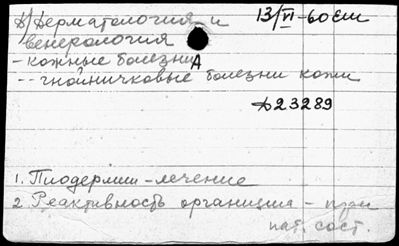 8) Дерматология и 13/VI-60 ЕШ
венерология
- кожные болезни А
-- гнойничковые болезни кожи
23289
1. Пиодермии - лечение
2. Реактивность организма - при
пат. сост.